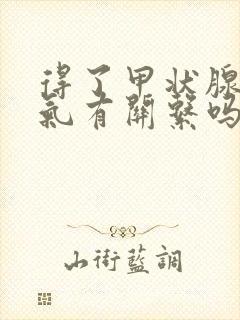 得了甲状腺
氣有關繫吗
山街藍調